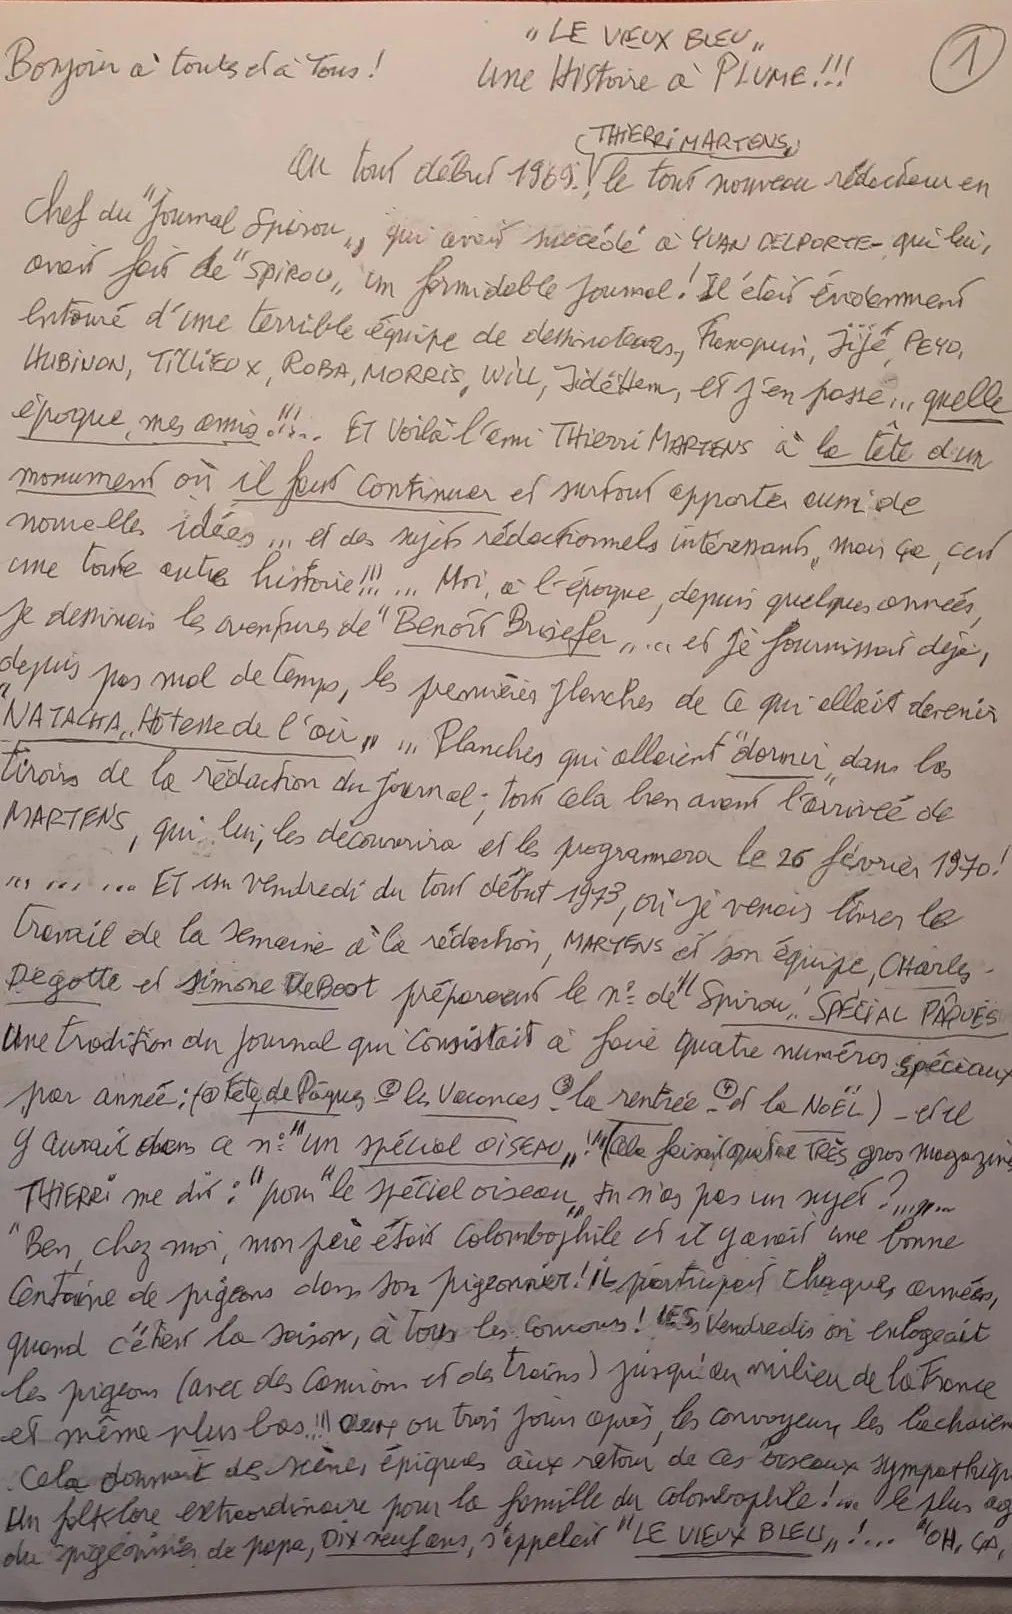 "LE VIEUX BLEU"
Bonjour à toutes et à Tous !
Une Histoire à PLUME !!!
1
THIERRI MARTENS,
Au tout début 1969 ! le tout nouveau rédacteur en
Chef du "Journal Spirou", qui avait succédé à YVAN DELPORTE - qui lui,
avait fait de "SPIROU" un formidable Journal ! Il était évidemment
entouré d'une terrible équipe de dessinateurs, Franquin, Jijé, PEYO,
HUBINON, TILLIEUX, ROBA, MORRIS, WILL, Jidéhem, et j'en passe... quelle
époque, mes amis !!!... ET Voilà l'ami THIERRI MARTENS à la tête d'un
monument où il faut continuer et surtout apporter aussi de
nouvelles idées... et des sujets rédactionnels intéressants, mais ça, c'est
une toute autre histoire !!!... Moi, à l'époque, depuis quelques années,
je dessinais les aventures de "Benoît Brisefer"... et je fournissais déjà,
depuis pas mal de temps, les premières planches de ce qui allait devenir
"NATACHA, Hôtesse de l'air"... Planches qui allaient "dormir" dans les
tiroirs de la rédaction du journal ; tout cela bien avant l'arrivée de
MARTENS, qui lui, les découvrira et les programmera le 26 février 1970 !
... ... ... ET un vendredi du tout début 1973, où je venais livrer le
travail de la semaine à la rédaction, MARTENS et son équipe, CHarles
Degotte et Simone DeBoot préparaient le n° de "Spirou" SPÉCIAL PÂQUES
Une tradition du journal qui consistait à faire quatre numéros spéciaux
par année : (① Fête de Pâques ② les Vacances ③ la rentrée ④ et la NOËL) - et il
y aurait dans ce n° "un spécial OISEAU" ! (Cela faisait quatre TRÈS gros magazines
THIERRI me dit : "pour "le spécial oiseau" tu n'as pas un sujet ?......
"Ben, chez moi, mon père était Colombophile et il y avait une bonne
Centaine de pigeons dans son pigeonnier ! IL participait chaques années,
quand c'était la saison, à tous les concours ! LES Vendredis on enlogeait
les pigeons (avec des camions et des trains) jusqu'au milieu de la France
et même plus bas !!! deux ou trois jours après, les convoyeurs les lachaient
Cela donnait des scènes épiques aux retour de ces oiseaux sympathiqu
Un folklore extraordinaire pour la famille du colombophile !... le plus ag
du pigeonnier de papa, DIX neuf ans, s'appelait "LE VIEUX BLEU" !.... "OH, ÇA,